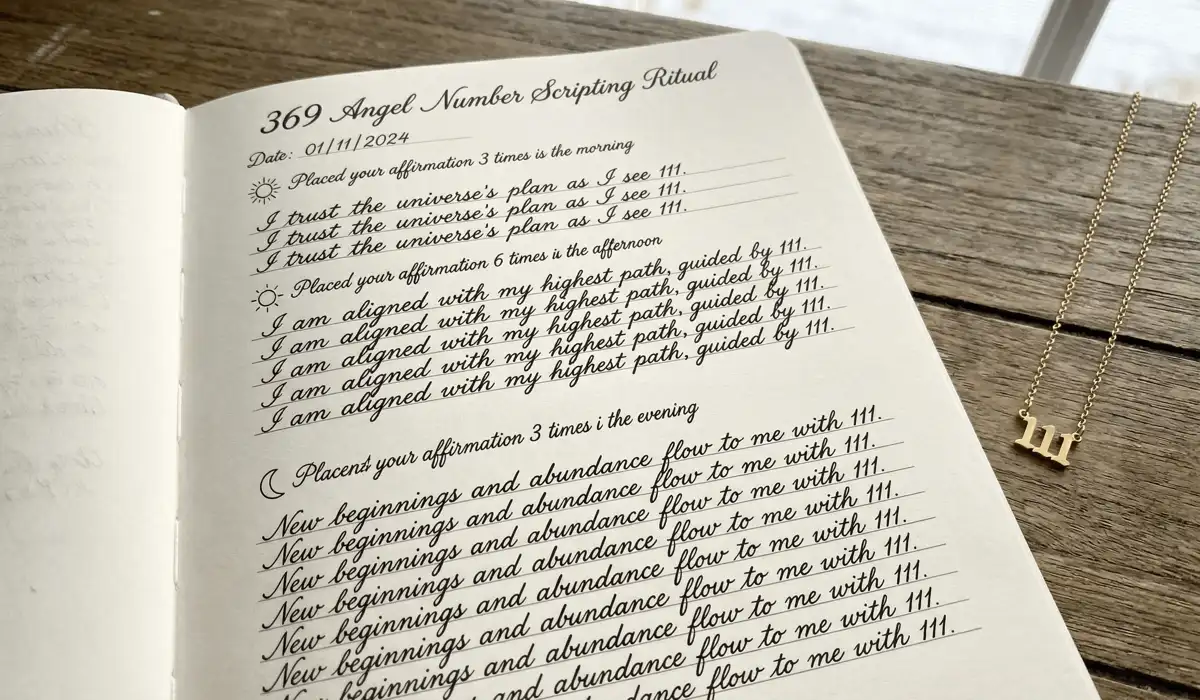 369 Angel Number Scripting Ritual
Date: 01/11/2024
Placed your affirmation 3 times is the morning
I trust the universe's plan as I see 111.
I trust the universe's plan as I see 111.
I trust the universe's plan as I see 111.
Placed your affirmation 6 times is the affernoon
I am aligned with my highest path, guided by 111.
I am aligned with my highest path, guided by 111.
I am aligned with my highest path, guided by 111.
I am aligned with my highest path, guided by 111.
I am aligned with my highest path, guided by 111.
your affirmation 3 times i the evening
New beginnings and abundance flow to me with 111.
New beginnings and abundance flow to me with 111.
New beginnings and abundance flow to me with 111.
New beginnings and abundance flow to me with 111.
New beginnings and abundance flow to me with 111.
New beginnings and abundance flow to me with 111.
New beginnings and abundance flow to me with 111.
and abundance flow to me with 111.
dance flow to me with 111.
111